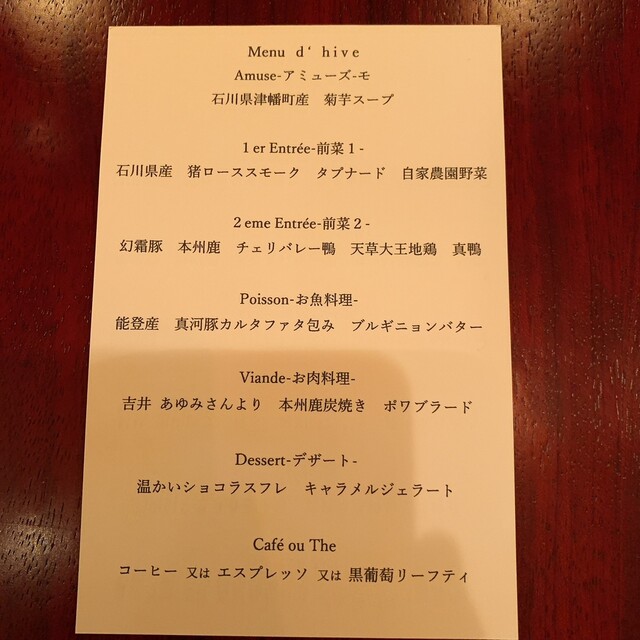 Menu d' hive
Amuse-アミューズ-モ
石川県津幡町産　菊芋スープ
1 er Entrée-前菜 1 -
石川県産　猪ローススモーク　タプナード　自家農園野菜
2 eme Entrée-前菜 2 -
幻霜豚　本州鹿　チェリバレー鴨　天草大王地鶏　真鴨
Poisson-お魚料理-
能登産　真河豚カルタファタ包み　ブルギニョンバター
Viande-お肉料理-
吉井 あゆみさんより　本州鹿炭焼き　ポワブラード
Dessert-デザート-
温かいショコラスフレ　キャラメルジェラート
Café ou The
コーヒー 又は エスプレッソ 又は 黒葡萄リーフティ